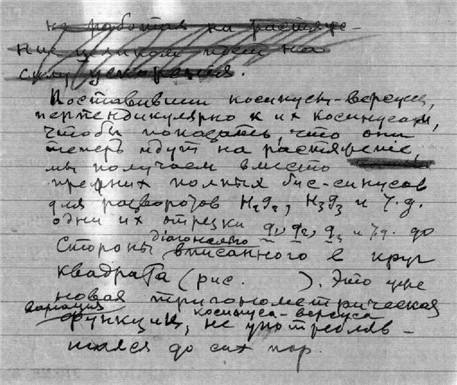 не работая на растяже-
ние целиком пошли на
силу ускорения.
Поставивши косинусы-версусы,
перпендикулярно к их косинусам,
чтобы показать, что они
теперь идут на растяжение,
мы получаем вместо
прежних полных бис-синусов
для разворотов H₂g₂, H₃g₃ и т.д.
одни их отрезки q₁, q₂, q₃ и т.д. до
диагонально
стороны вписанного в круг
квадрата (рис. ). Это уже
новая тригонометрическая
вариация косинуса-версуса
функции, не употребляв-
шаяся до сих пор.